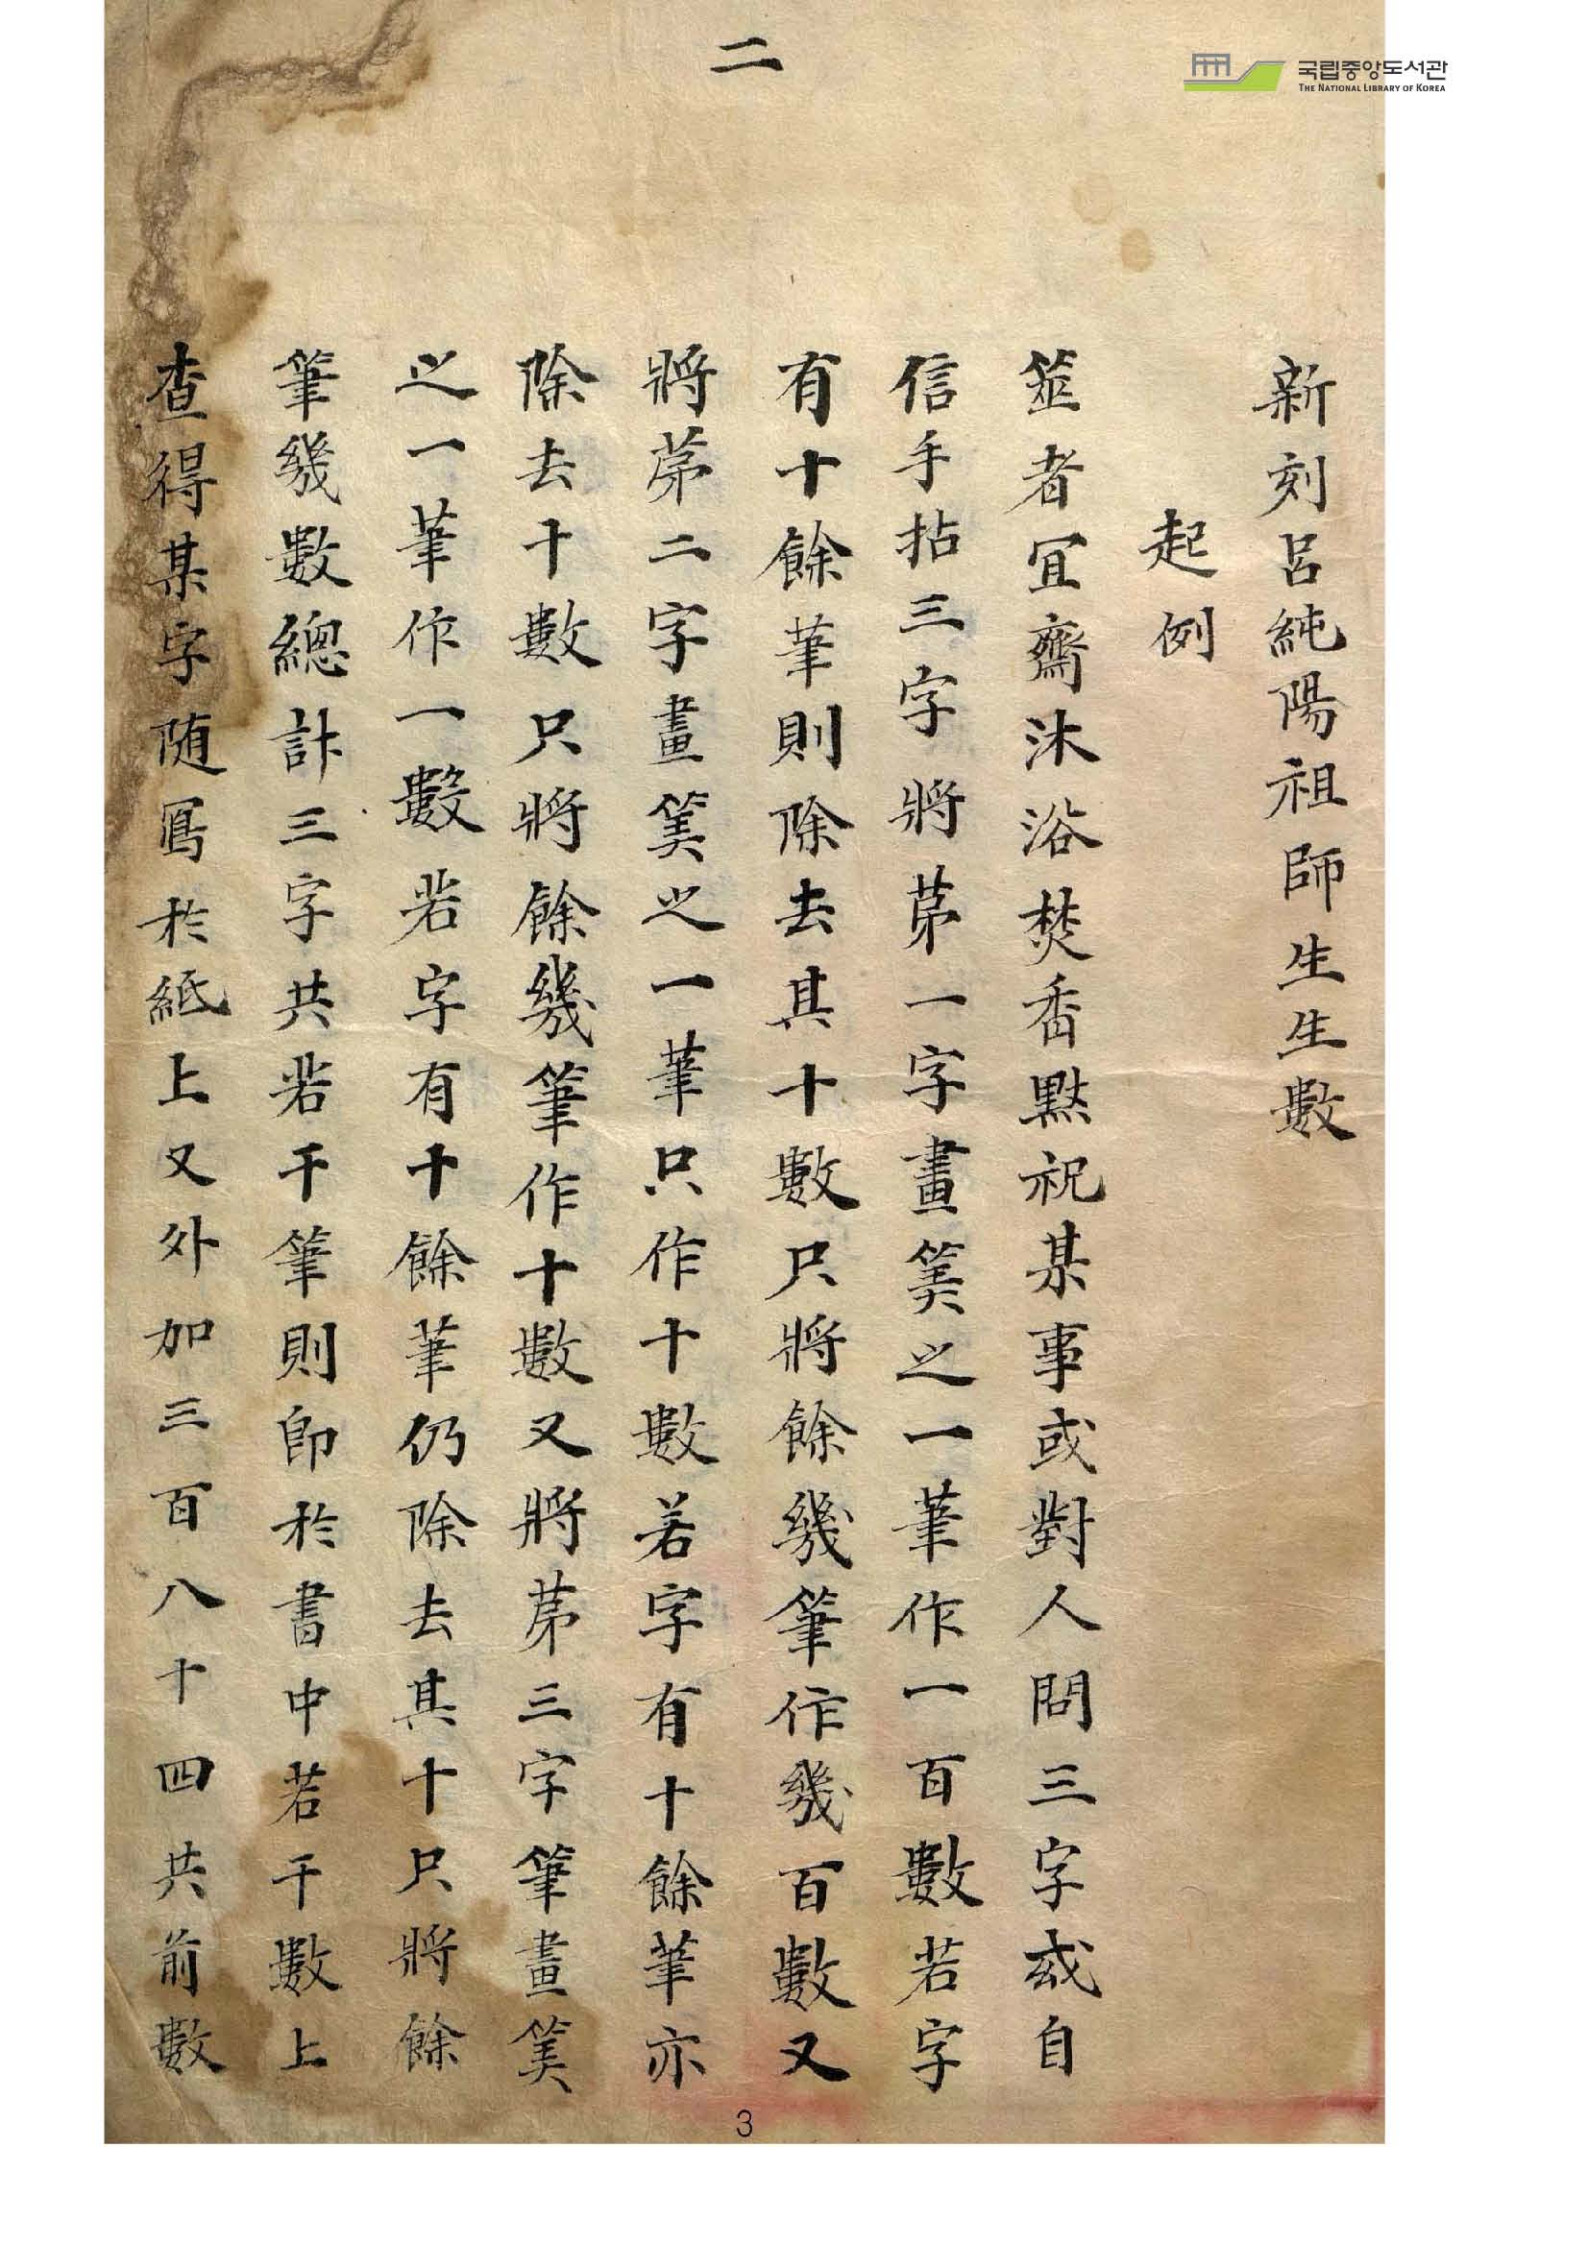 二
국립중앙도서관
THE NATIONAL LIBRARY OF KOREA
新刻呂純陽祖師生生數
起例
筮者冝齋沐浴焚香黙祝某事或對人問三字或自
信手拈三字將苐一字畫筭之一筆作一百數若字
有十餘筆則除去其十數只將餘幾筆作幾百數又
將苐二字畫筭之一筆只作十數若字有十餘筆亦
除去十數只將餘幾筆作十數又將苐三字筆畫筭
之一筆作一數若字有十餘筆仍除去其十只將餘
筆幾數總計三字共若干筆則即於書中若干數上
查得某字随寫於紙上又外加三百八十四共前數
3